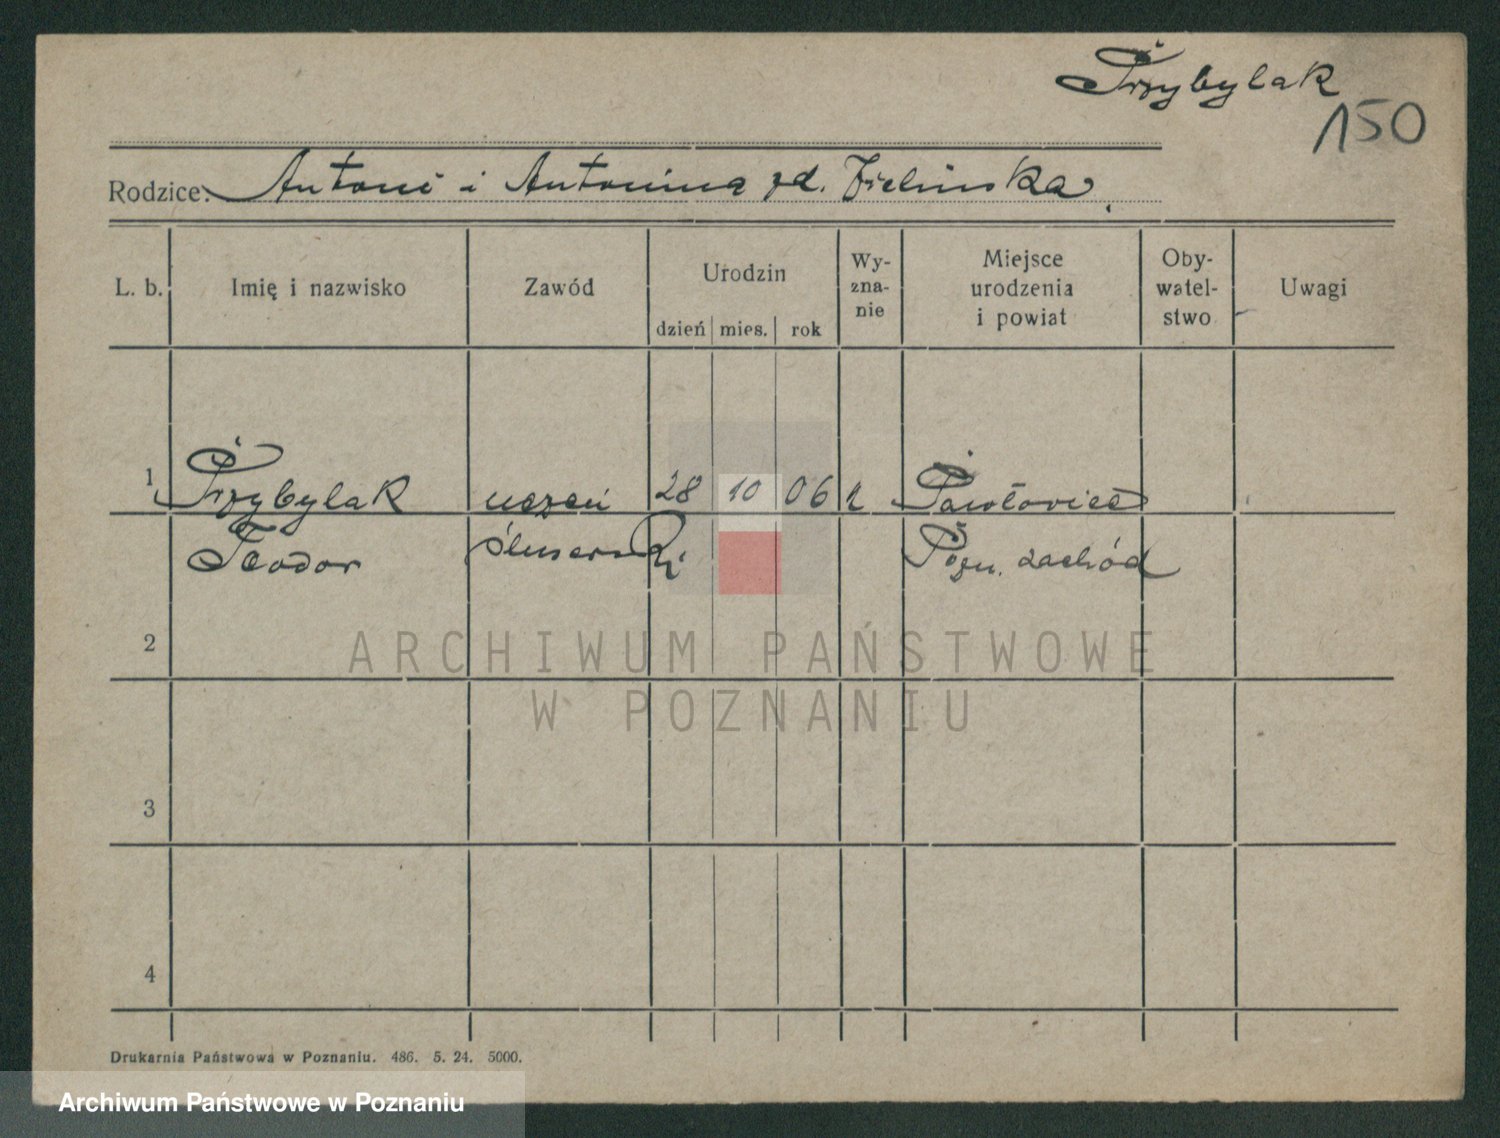 Przybylak
150
Rodzice: Antoni i Antonina zd. Zielinska
L. b. Imię i nazwisko Zawód Urodzin dzień mies. rok Wy-zna-nie Miejsce urodzenia i powiat Oby-watel-stwo Uwagi
1 Przybylak uczeń 28 10 06 k Pawłowice
Teodor ślusarski Pozn. zachód
2
ARCHIWUM PAŃSTWOWE
W POZNANIU
3
4
Drukarnia Państwowa w Poznaniu. 486. 5. 24. 5000.
Archiwum Państwowe w Poznaniu